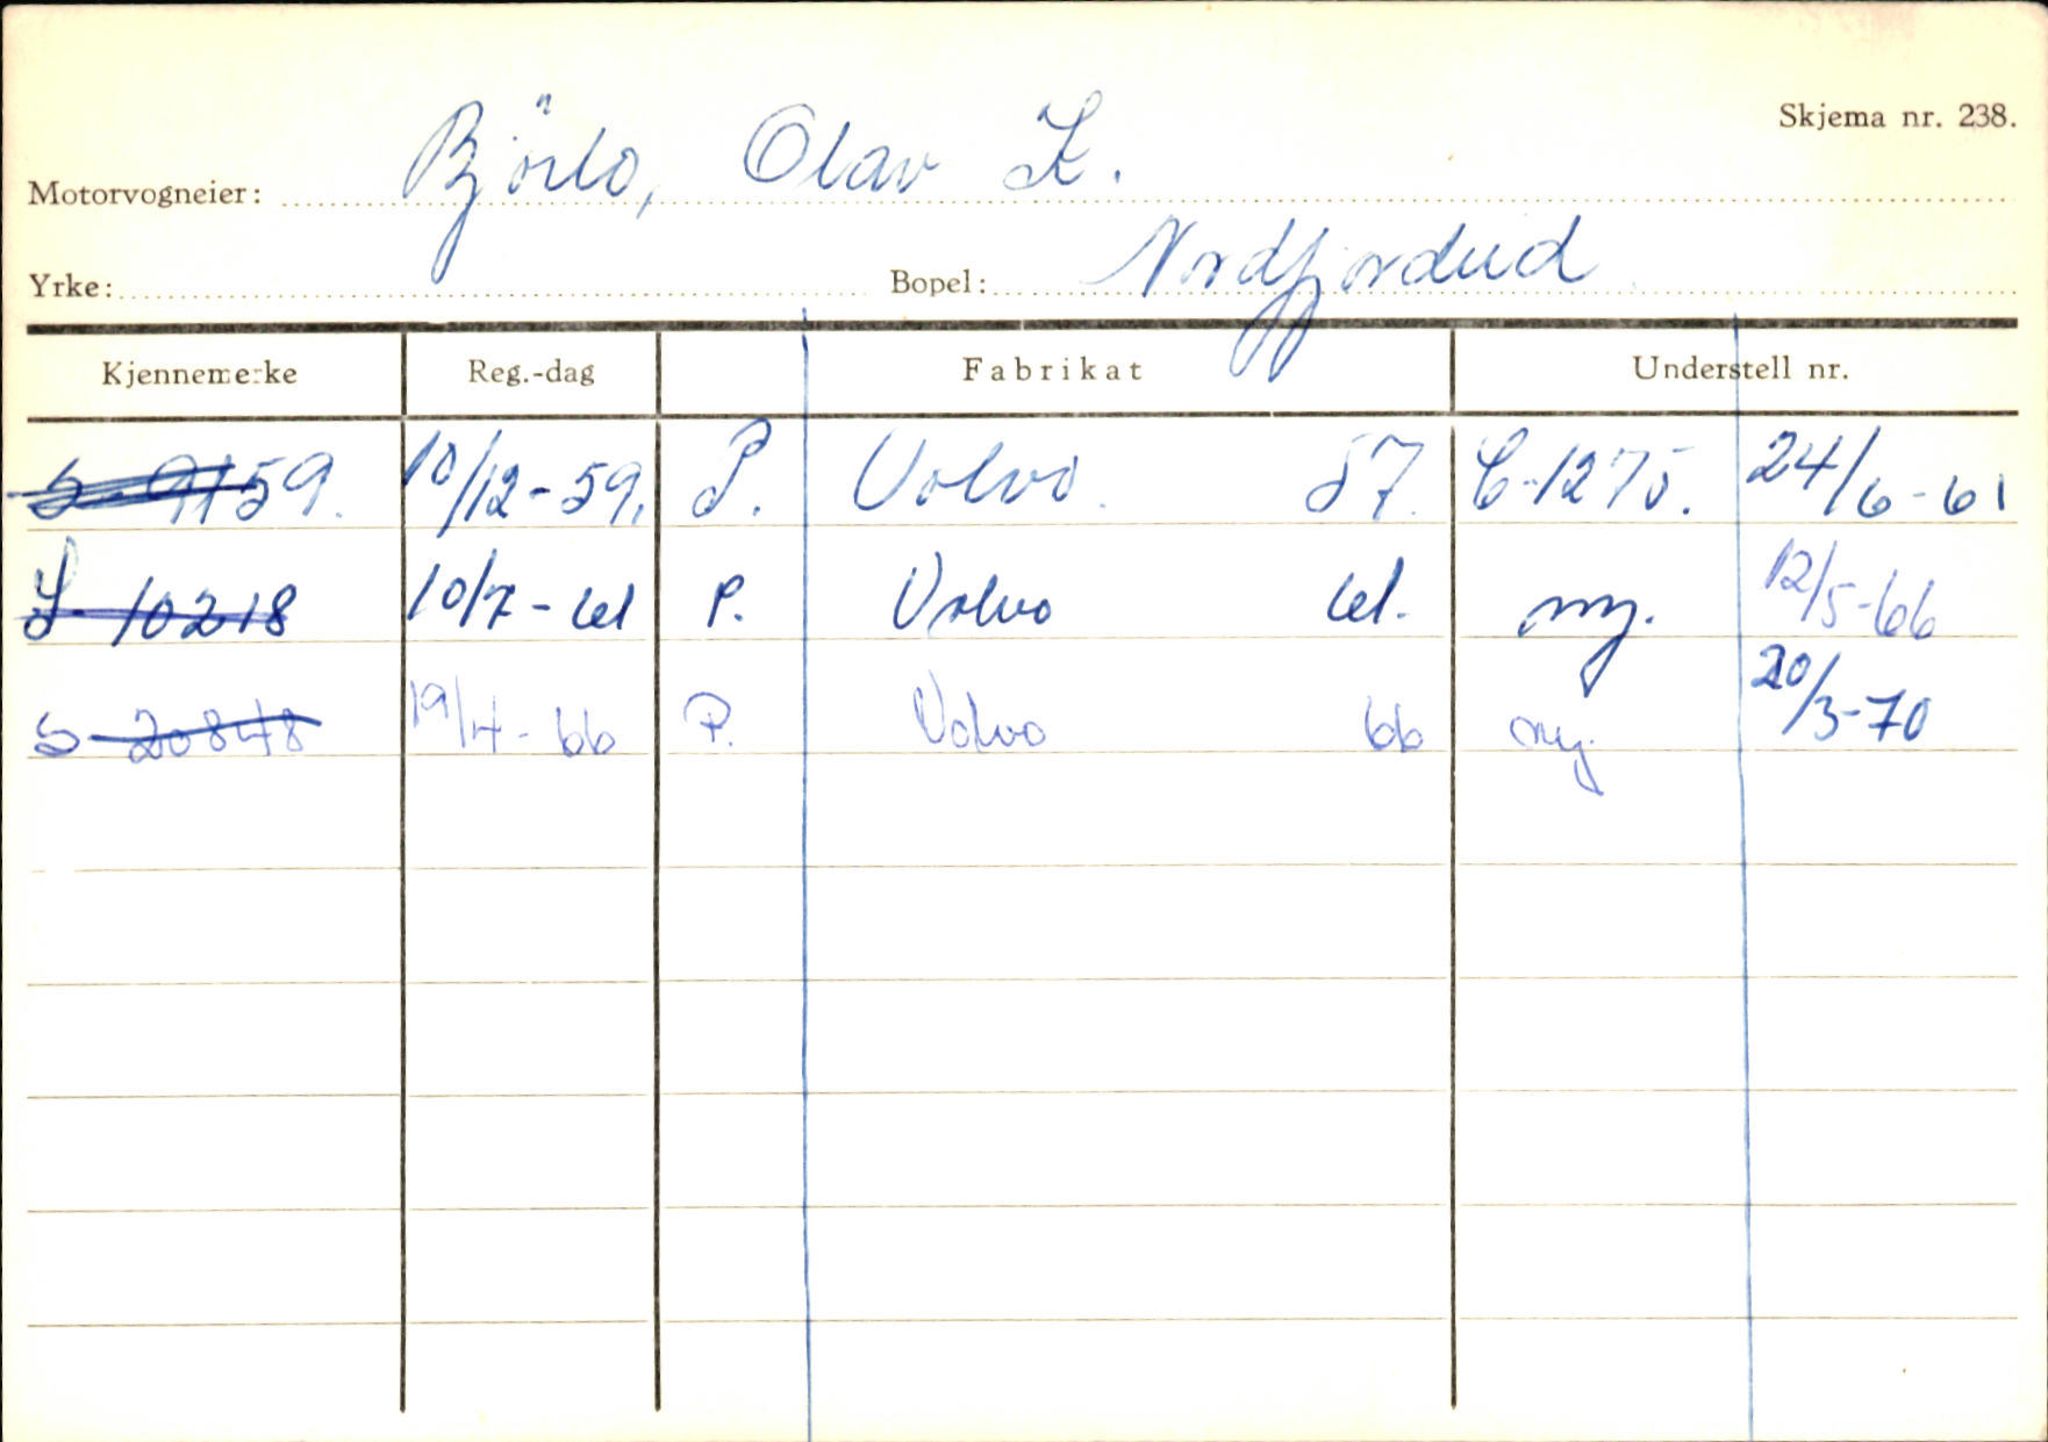 Skjema nr. 238.
Motorvogneier: Björlo, Olav K.
Yrke: Bopel: Nordfjordeid
Kjennemerke Reg.-dag Fabrikat Understell nr.
S-9159. 10/12-59. P. Volvo. 57. C-1275. 24/6-61
S-10218 10/7-61 P. Volvo 61. ny. 12/5-66
S-20848 19/4-66 P. Volvo 66 ny. 20/3-70